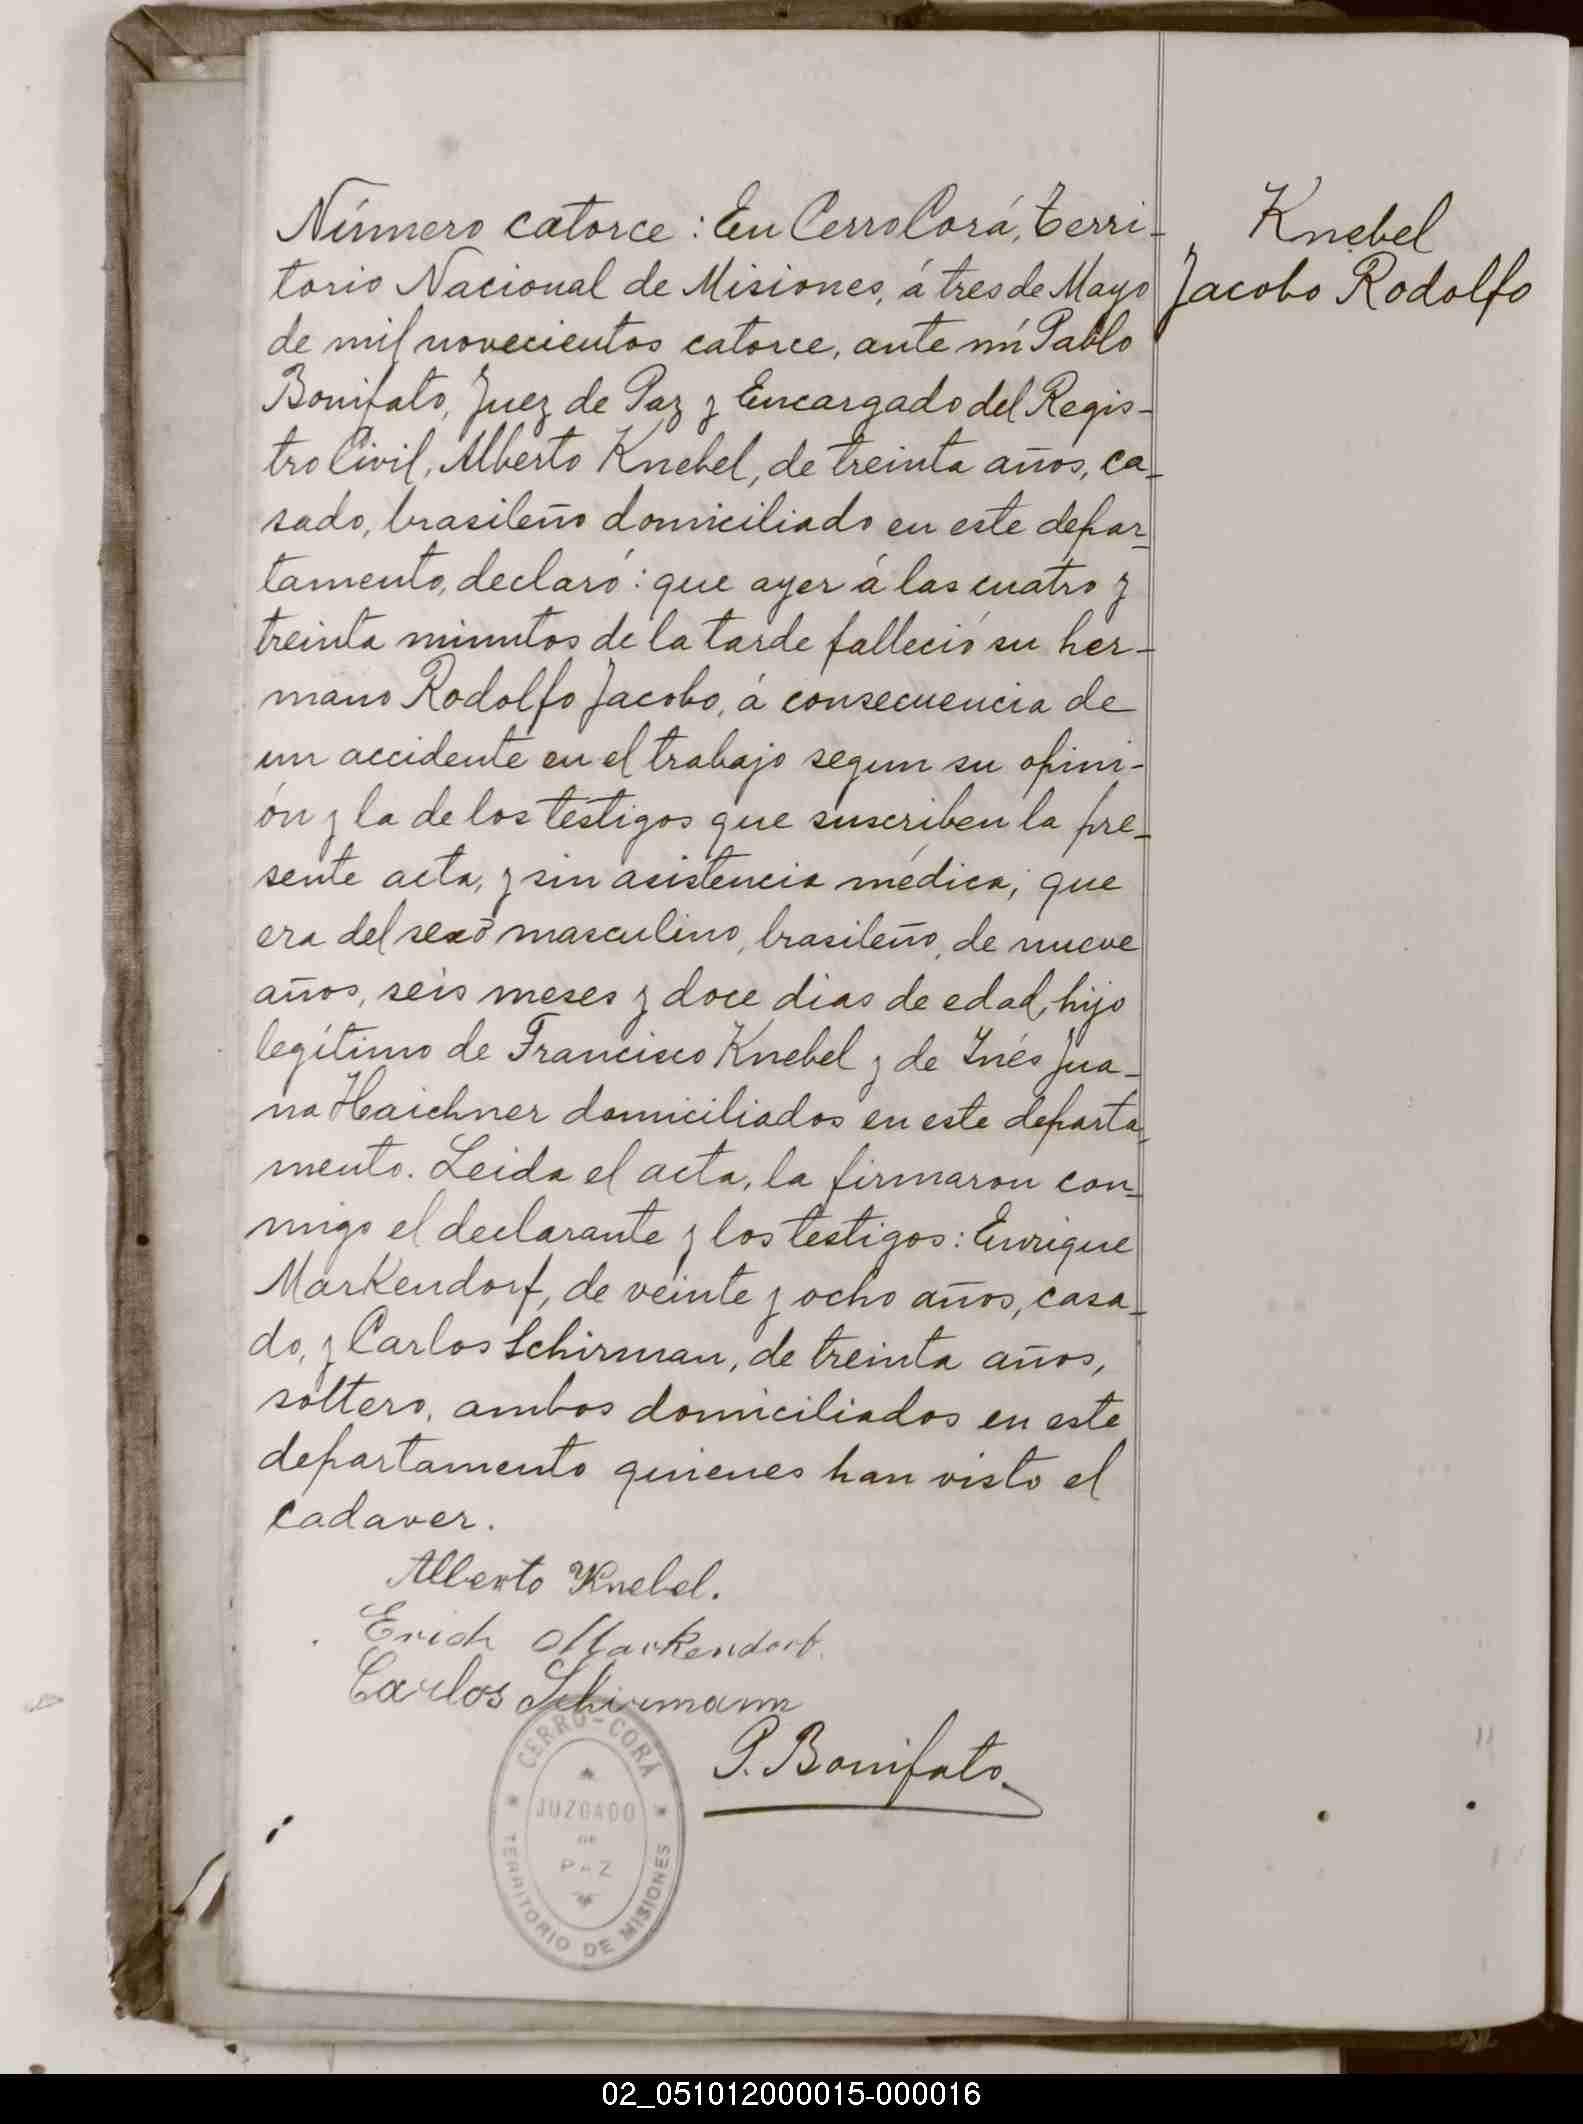 Número catorce: En Cerro Corá, Terri-
torio Nacional de Misiones, á tres de Mayo
de mil novecientos catorce, ante mí Pablo
Bonifato, Juez de Paz y Encargado del Regis-
tro Civil, Alberto Knebel, de treinta años, ca-
sado, brasileño domiciliado en este depar-
tamento, declaró: que ayer á las cuatro y
treinta minutos de la tarde falleció su her-
mano Rodolfo Jacobo, á consecuencia de
un accidente en el trabajo segun su opini-
ón y la de los testigos que suscriben la pre-
sente acta, y sin asistencia médica; que
era del sexo masculino, brasileño, de nueve
años, seis meses y doce dias de edad, hijo
legítimo de Francisco Knebel y de Inés Jua-
na Haichner domiciliados en este departa-
mento. Leida el acta, la firmaron con-
migo el declarante y los testigos: Enrique
Markendorf, de veinte y ocho años, casa-
do, y Carlos Schirman, de treinta años,
soltero, ambos domiciliados en este
departamento quienes han visto el
cadaver.
Knebel
Jacobo Rodolfo
Alberto Knebel.
Erich Markendorf.
Carlos Schirmann
P. Bonifato
CERRO-CORÁ
JUZGADO
DE
PAZ
TERRITORIO DE MISIONES
02_051012000015-000016